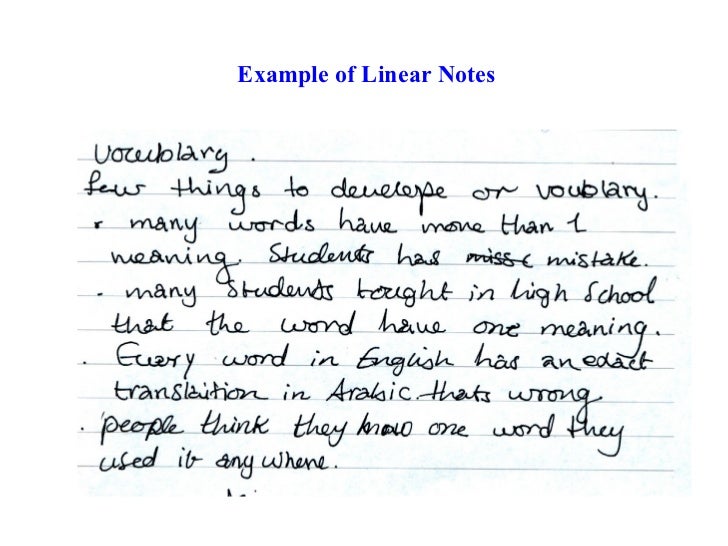 Example of Linear Notes
Vocublary .
few things to develepe or voublary.
• many words have more than 1
meaning. Students has miss mistake.
• many Students tought in high School
that the word have one meaning.
• Every word in English has an edact
translaition in Arabic. thats wrong
• people think they know one word they
used it anywhere.